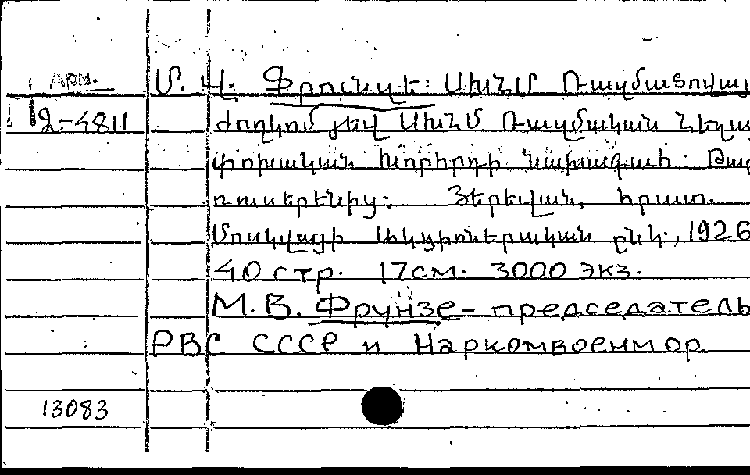 Арм.
2-4811
Մ. Վ. Ֆրունզե: ՍԽՀՄ Ռազմածովայ
ժողկոմ յեվ ՍԽՀՄ Ռազմական Հեղա
փոխական խորհրդի նախագահ: Թար
ռուսերենից: Յերեվան, հրատ.
Մոսկվայի ակցիոներական ընկ., 1926
40 стр. 17 см. 3000 экз.
М. В. Фрунзе - председатель
РВС СССР и Наркомвоенмор.
13083